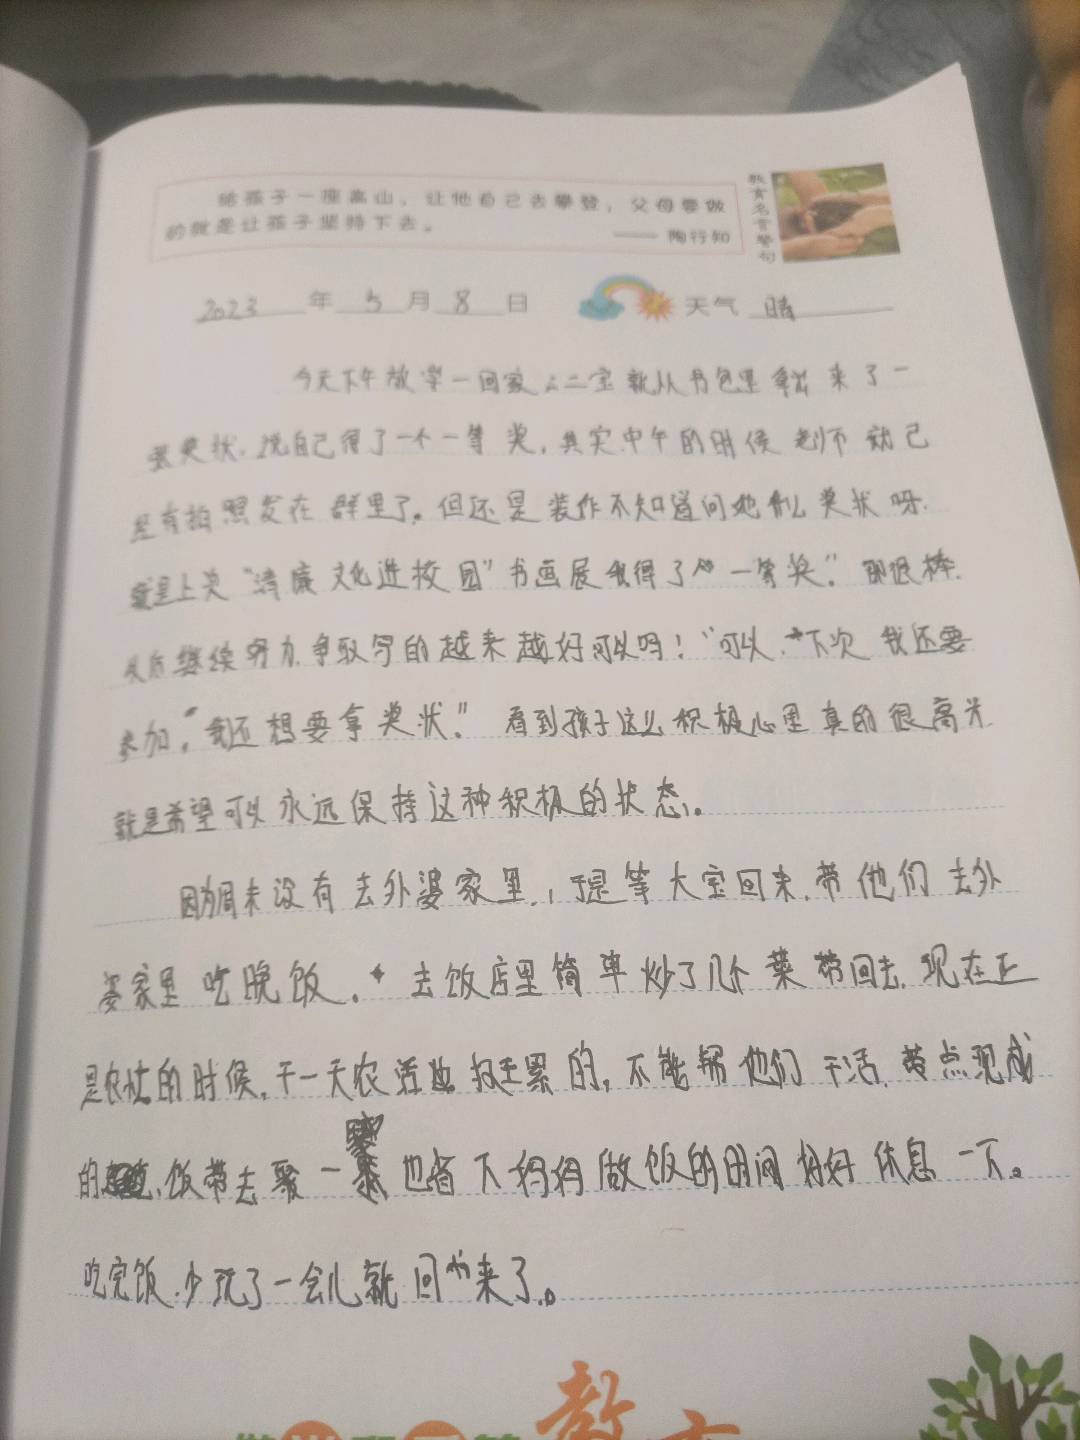 给孩子一座高山，让他自己去攀登，父母要做
的就是让孩子坚持下去。
—— 陶行知
教育名言警句
2023 年 5 月 8 日 天气 晴
今天下午放学一回家，二宝就从书包里拿出来了一
张奖状，说自己得了一个一等奖，其实中午的时候老师就己
经有拍照发在群里了。但还是装作不知道问她什么奖状呀，
就是上次“清廉文化进校园”书画展我得了个一等奖。”那很棒，
以后继续努力争取写的越来越好可以吗！“可以，下次我还要
参加，我还想要拿奖状。”看到孩子这么积极心里真的很高兴
就是希望可以永远保持这种积极的状态。
因为周末没有去外婆家里，于是等大宝回来，带他们去外
婆家里吃晚饭。去饭店里简单炒了几个菜带回去，现在正
是农忙的时候，干一天农活也挺累的，不能帮他们干活，带点现成
的饭带去聚一聚也省下妈妈做饭的时间好好休息一下。
吃完饭，少玩了一会儿就回来了。
教育